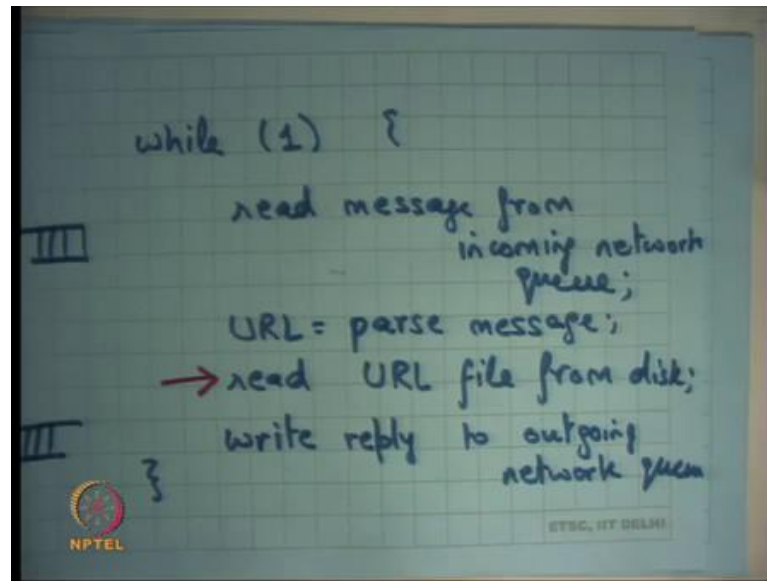 while (1) {
read message from
incoming network
queue;
URL = parse message;
→ read URL file from disk;
write reply to outgoing
network queu
}
NPTEL
ETSC, IIT DELHI